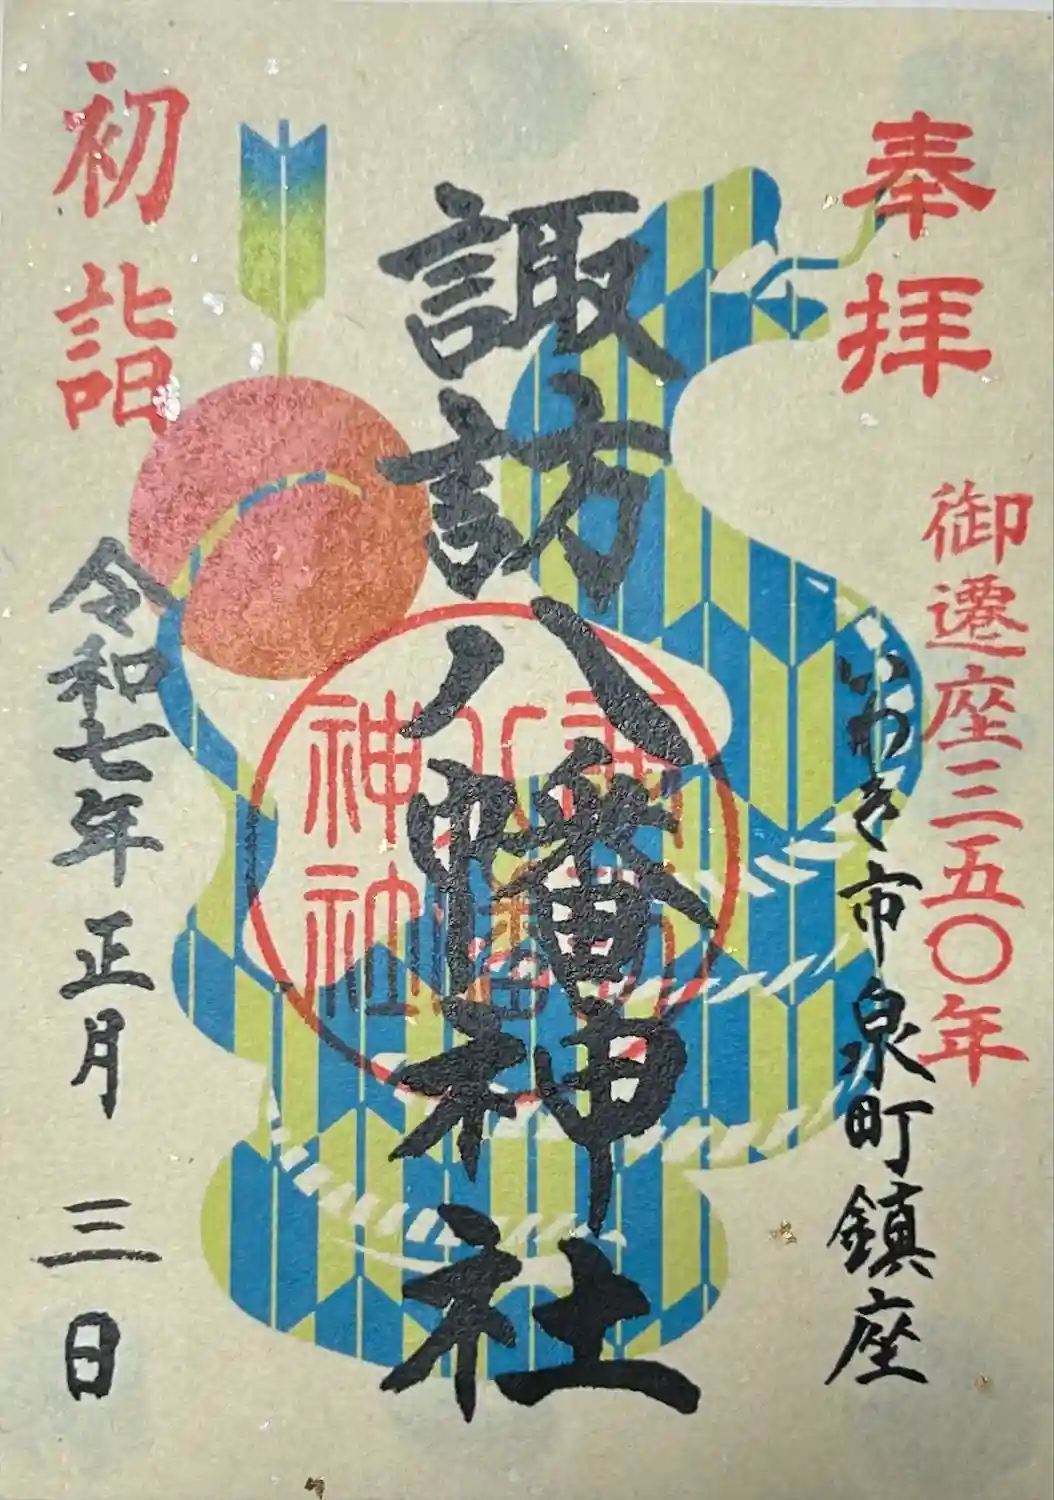 奉拝
御遷座三五〇年
いわき市泉町鎮座
諏訪八幡神社
諏訪八幡神社
初詣
令和七年正月三日